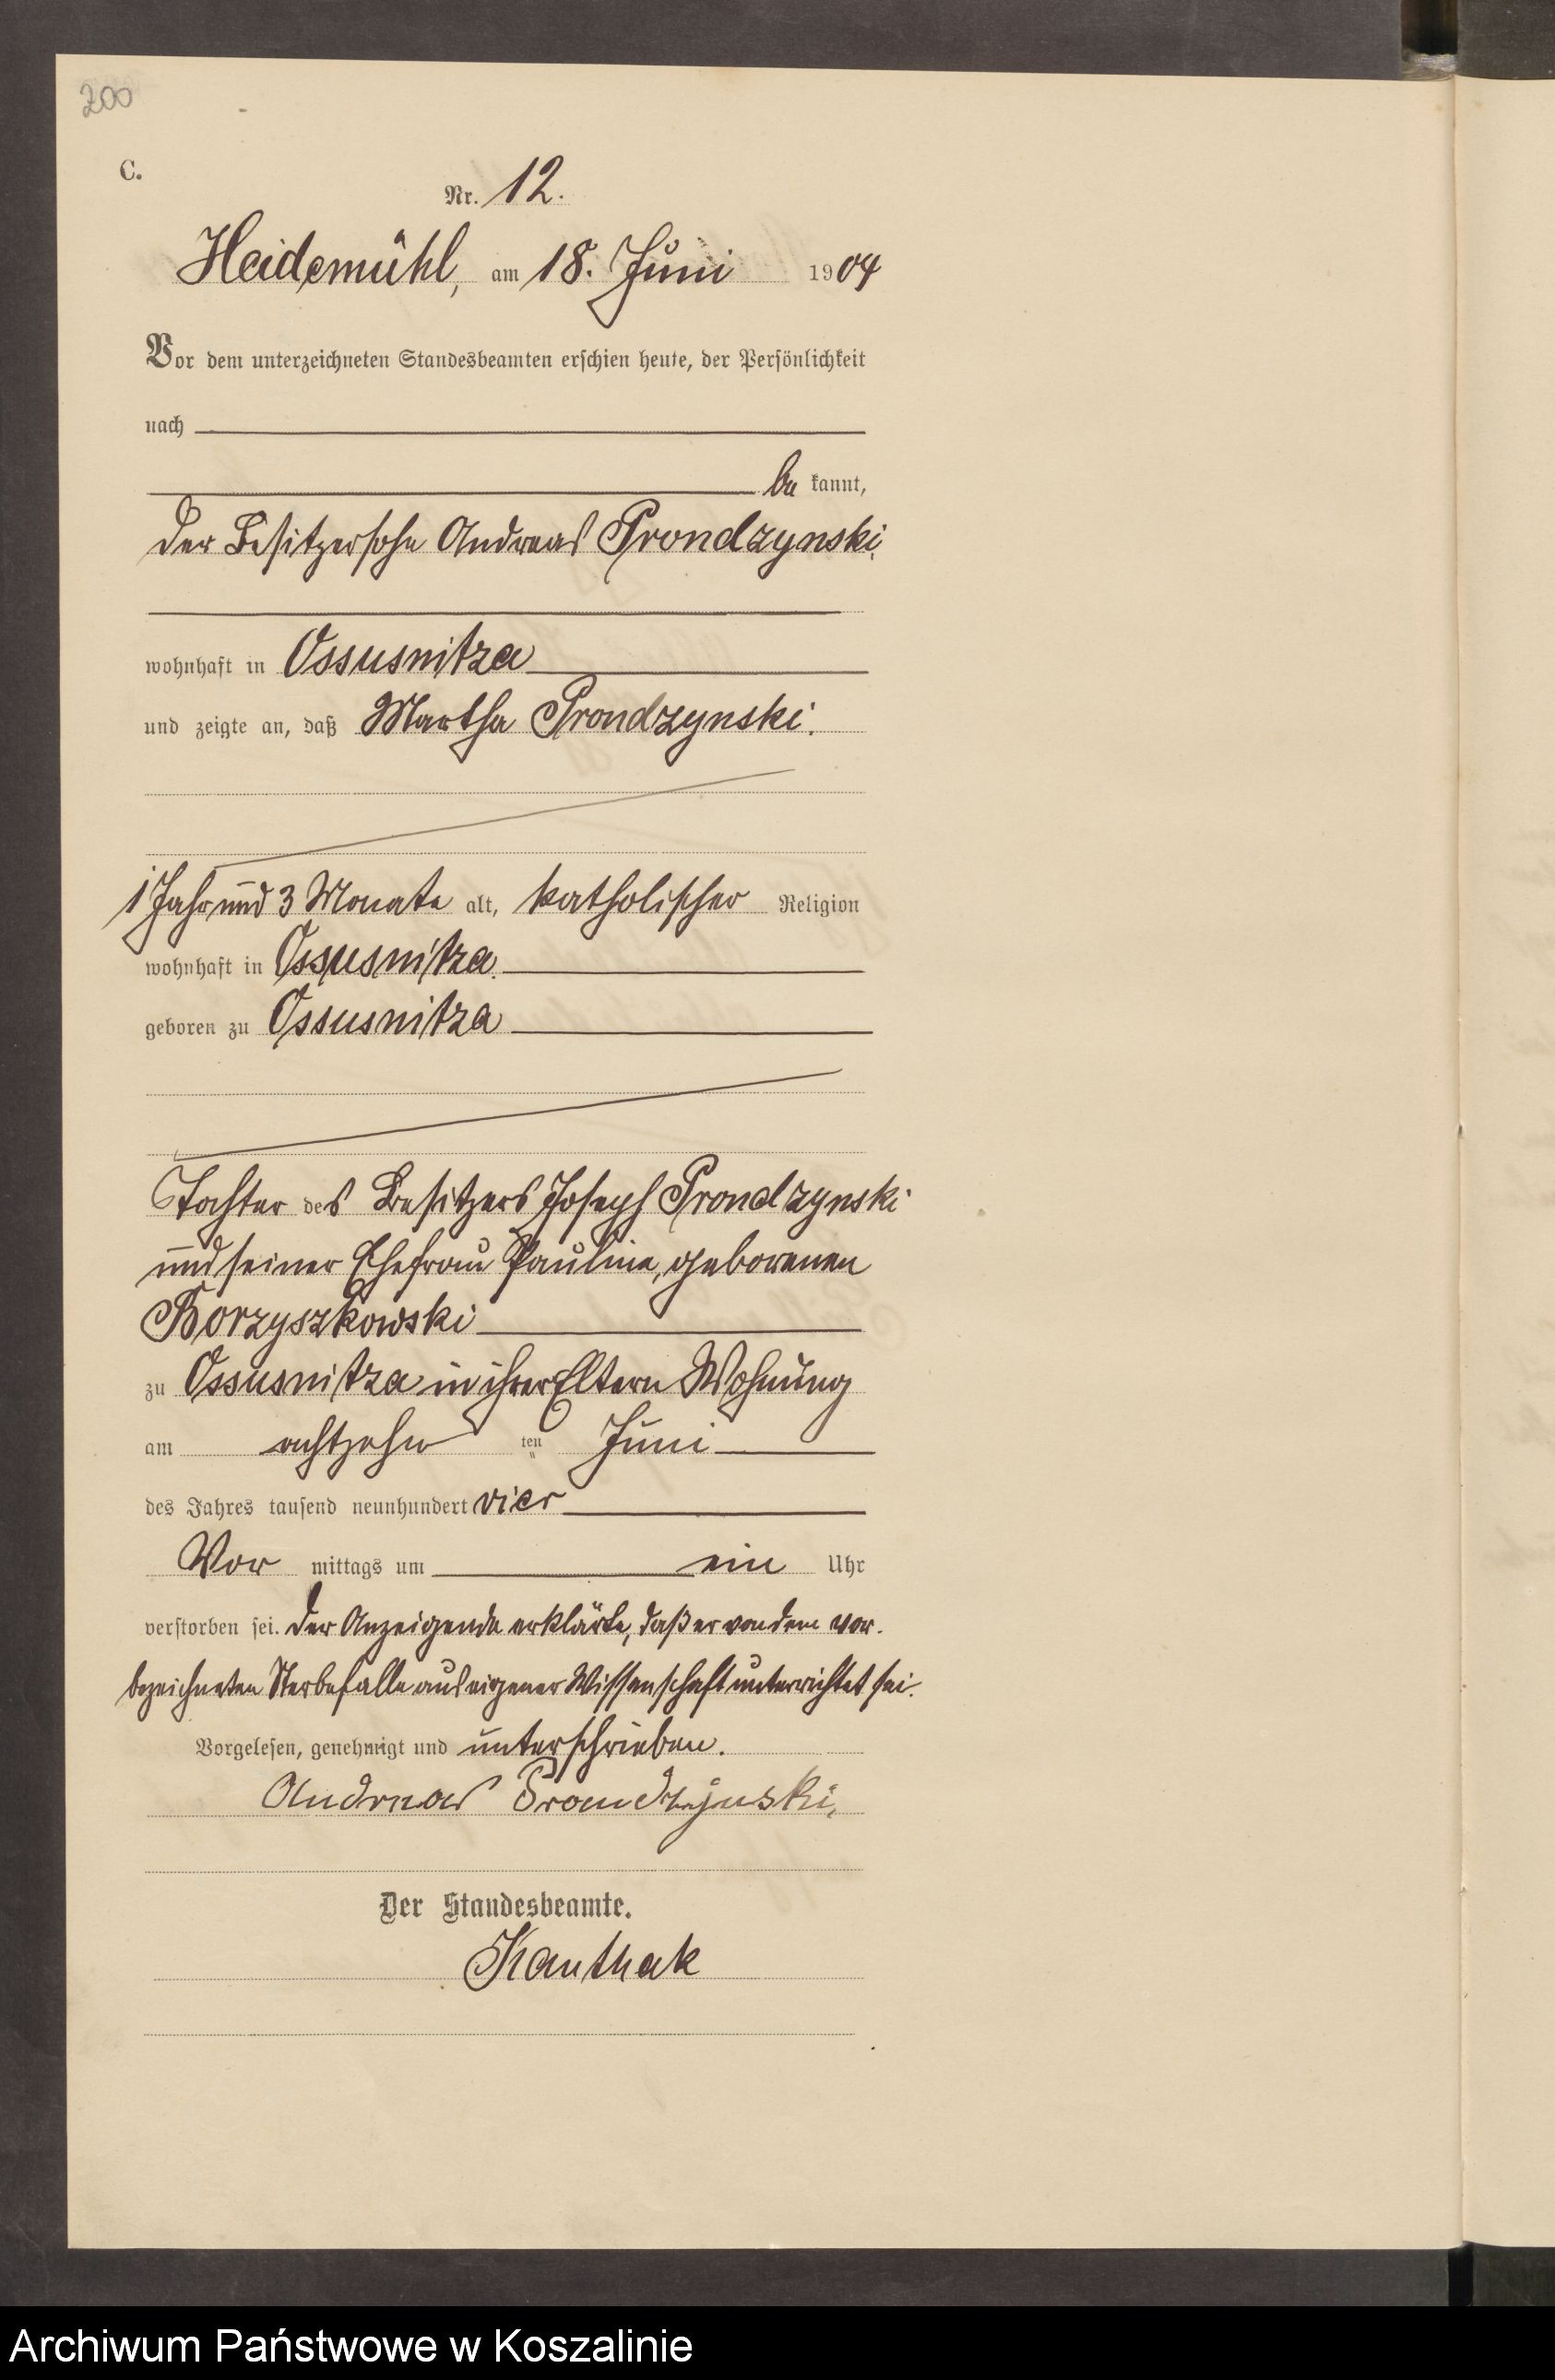 200
C.
Nr. 12.
Heidemühl, am 18. Juni 1904
Vor dem unterzeichneten Standesbeamten erschien heute, der Persönlichkeit
nach
be kannt,
der Besitzersohn Andreas Prondzynski,
wohnhaft in Ossusnitza
und zeigte an, daß Martha Prondzynski.
1 Jahr und 3 Monate alt, katholischer Religion
wohnhaft in Ossusnitza
geboren zu Ossusnitza
Tochter des Besitzers Joseph Prondzynski
und seiner Ehefrau Pauline, geborenen
Borzyszkowski
zu Ossusnitza in ihrer Eltern Wohnung
am achtzehn ten Juni
des Jahres tausend neunhundert vier
Vor mittags um ein Uhr
verstorben sei. Der Anzeigende erklärte, daß er von dem vor-
bezeichneten Sterbefalle aus eigener Wissenschaft unterrichtet sei.
Vorgelesen, genehmigt und unterschrieben.
Andreas Prondzynski,
Der Standesbeamte.
Kanthak
Archiwum Państwowe w Koszalinie